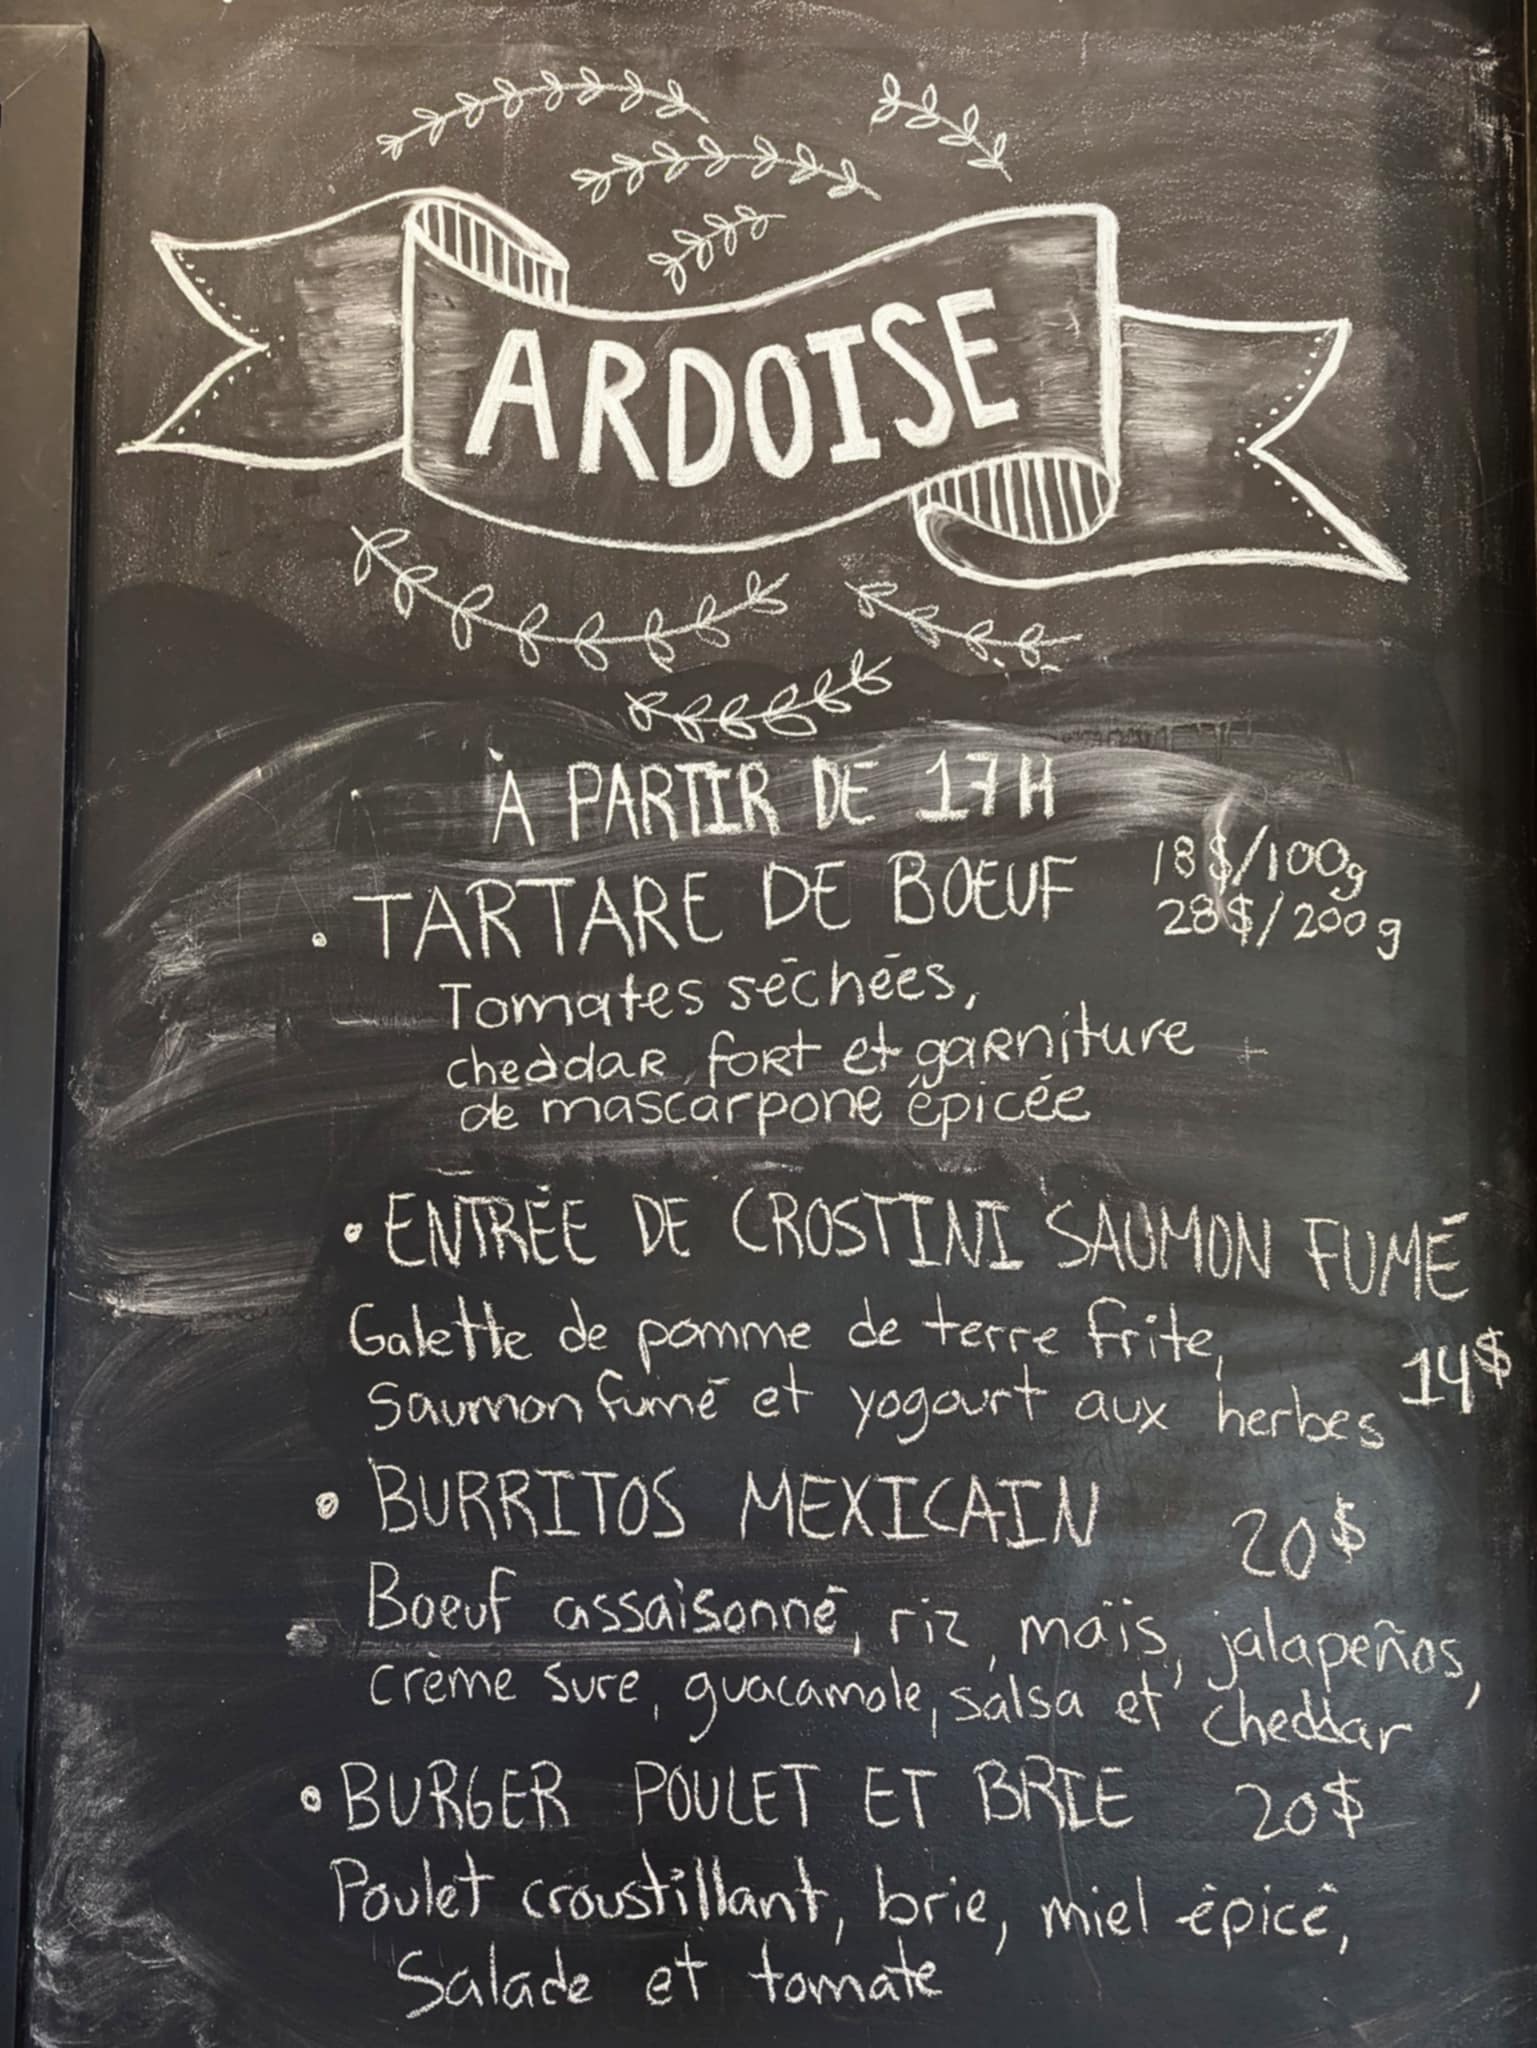 ARDOISE
À PARTIR DE 17H
• TARTARE DE BOEUF 18$/100g
28$/200g
Tomates séchées,
cheddar fort et garniture
de mascarpone épicée
• ENTRÉE DE CROSTINI SAUMON FUMÉ
Galette de pomme de terre frite,
Saumon fumé et yogourt aux herbes 14$
• BURRITOS MEXICAIN 20$
Boeuf assaisonné, riz, maïs, jalapeños,
crème sure, guacamole, salsa et cheddar
• BURGER POULET ET BRIE 20$
Poulet croustillant, brie, miel épicé,
Salade et tomate